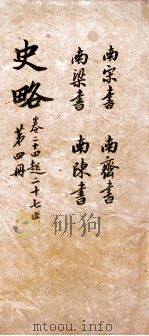 南宋書 南齊書
南梁書 南陳書
史略
卷二十四起二十七止
第四冊
mtoou.info